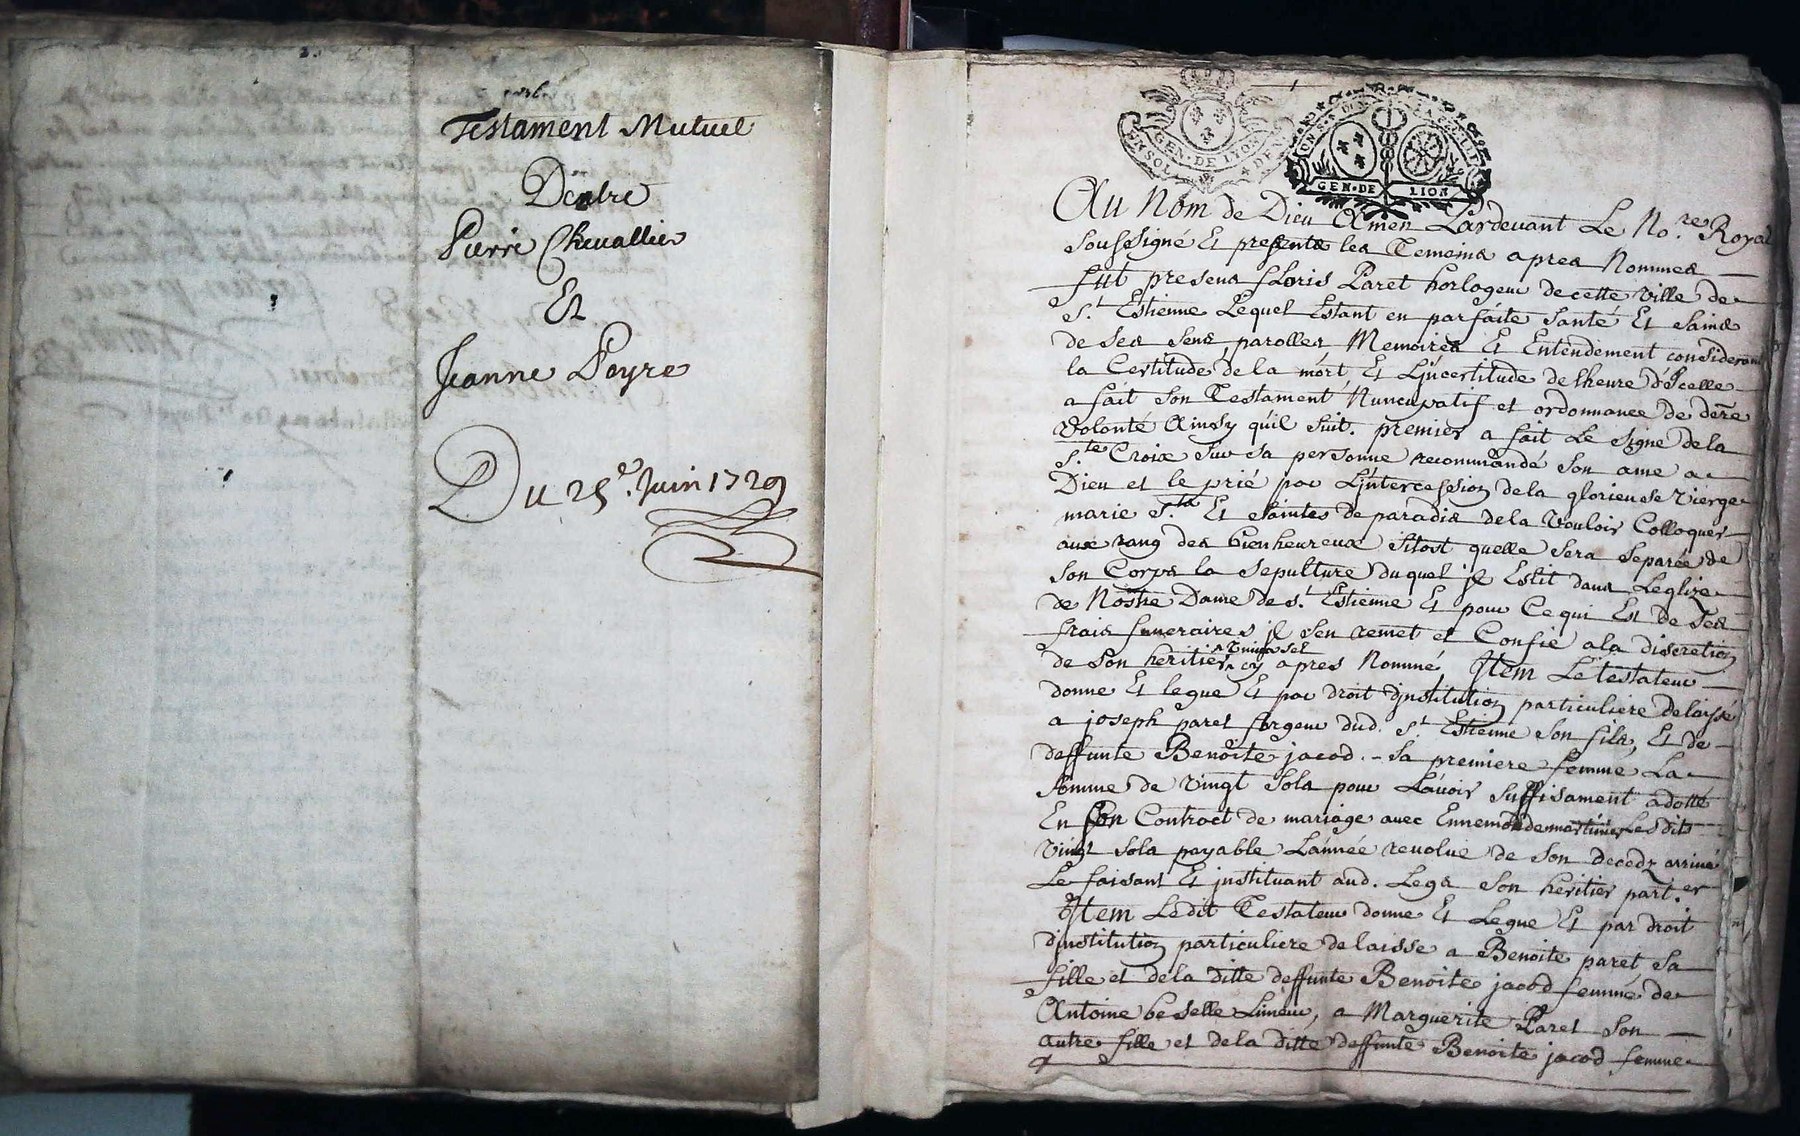 Testament Mutuel
Dentre
Pierre Chevallier
Et
Jeanne Peyre
Du 25e. Juin 1729
GEN. DE LYON
GEN. DE LION
Au Nom de Dieu Amen Pardevant Le No.re Royal
soussigné Et presents les Temeins apres Nommes
fut presens floris Paret horlogeur de cette ville de
St. Estienne Lequel Estant en parfaite santé Et saine
de ses sens, parolles Memoires Et Entendement considerant
la Certitude de la mort Et L'jncertitude de lheure d'Jcelle
a fait son Testament Nuncupatif et ordonnance de dere
Volonté Ainsy qu'il suit. premier a fait Le signe de la
Ste Croix sur sa personne recommandé son ame a
Dieu et le prié par L'jntercession de la glorieuse Vierge
marie Sts Et saintes de paradis de la Vouloir Colloquer
aux rang des bienheureux sitost quelle sera separée de
son Corps la sepulture du quel jl Eslit dans Leglize
de Nostre Dame de St. Estienne Et pour Ce qui Est de ses
frais funeraires jl sen remet et Confie a la discretion
de son heritier universel cy apres Nommé, Jtem Le testateur
donne Et legue Et par droit djnstitution particuliere delaissé
a joseph paret forgeur dud. St. Estienne son fils, Et de
deffunte Benoite jacod. - sa premiere femme La
somme de vingt sols pour L'avoir suffisament adotté
En son Contract de mariage avec Ennemonde martinier Lesdits
vingt sols payable L'année revolue de son decedz arrivé
Le faisant Et jnstituant aud. Legs son heritier part.er
Jtem Ledit Testateur donne Et Legue Et par droit
djnstitution particuliere delaisse a Benoite paret sa
fille et de la ditte deffunte Benoite jacod femme de
Antoine beselle Limeur, a Marguerite Paret son
autre fille et de la ditte deffunte Benoite jacod femme